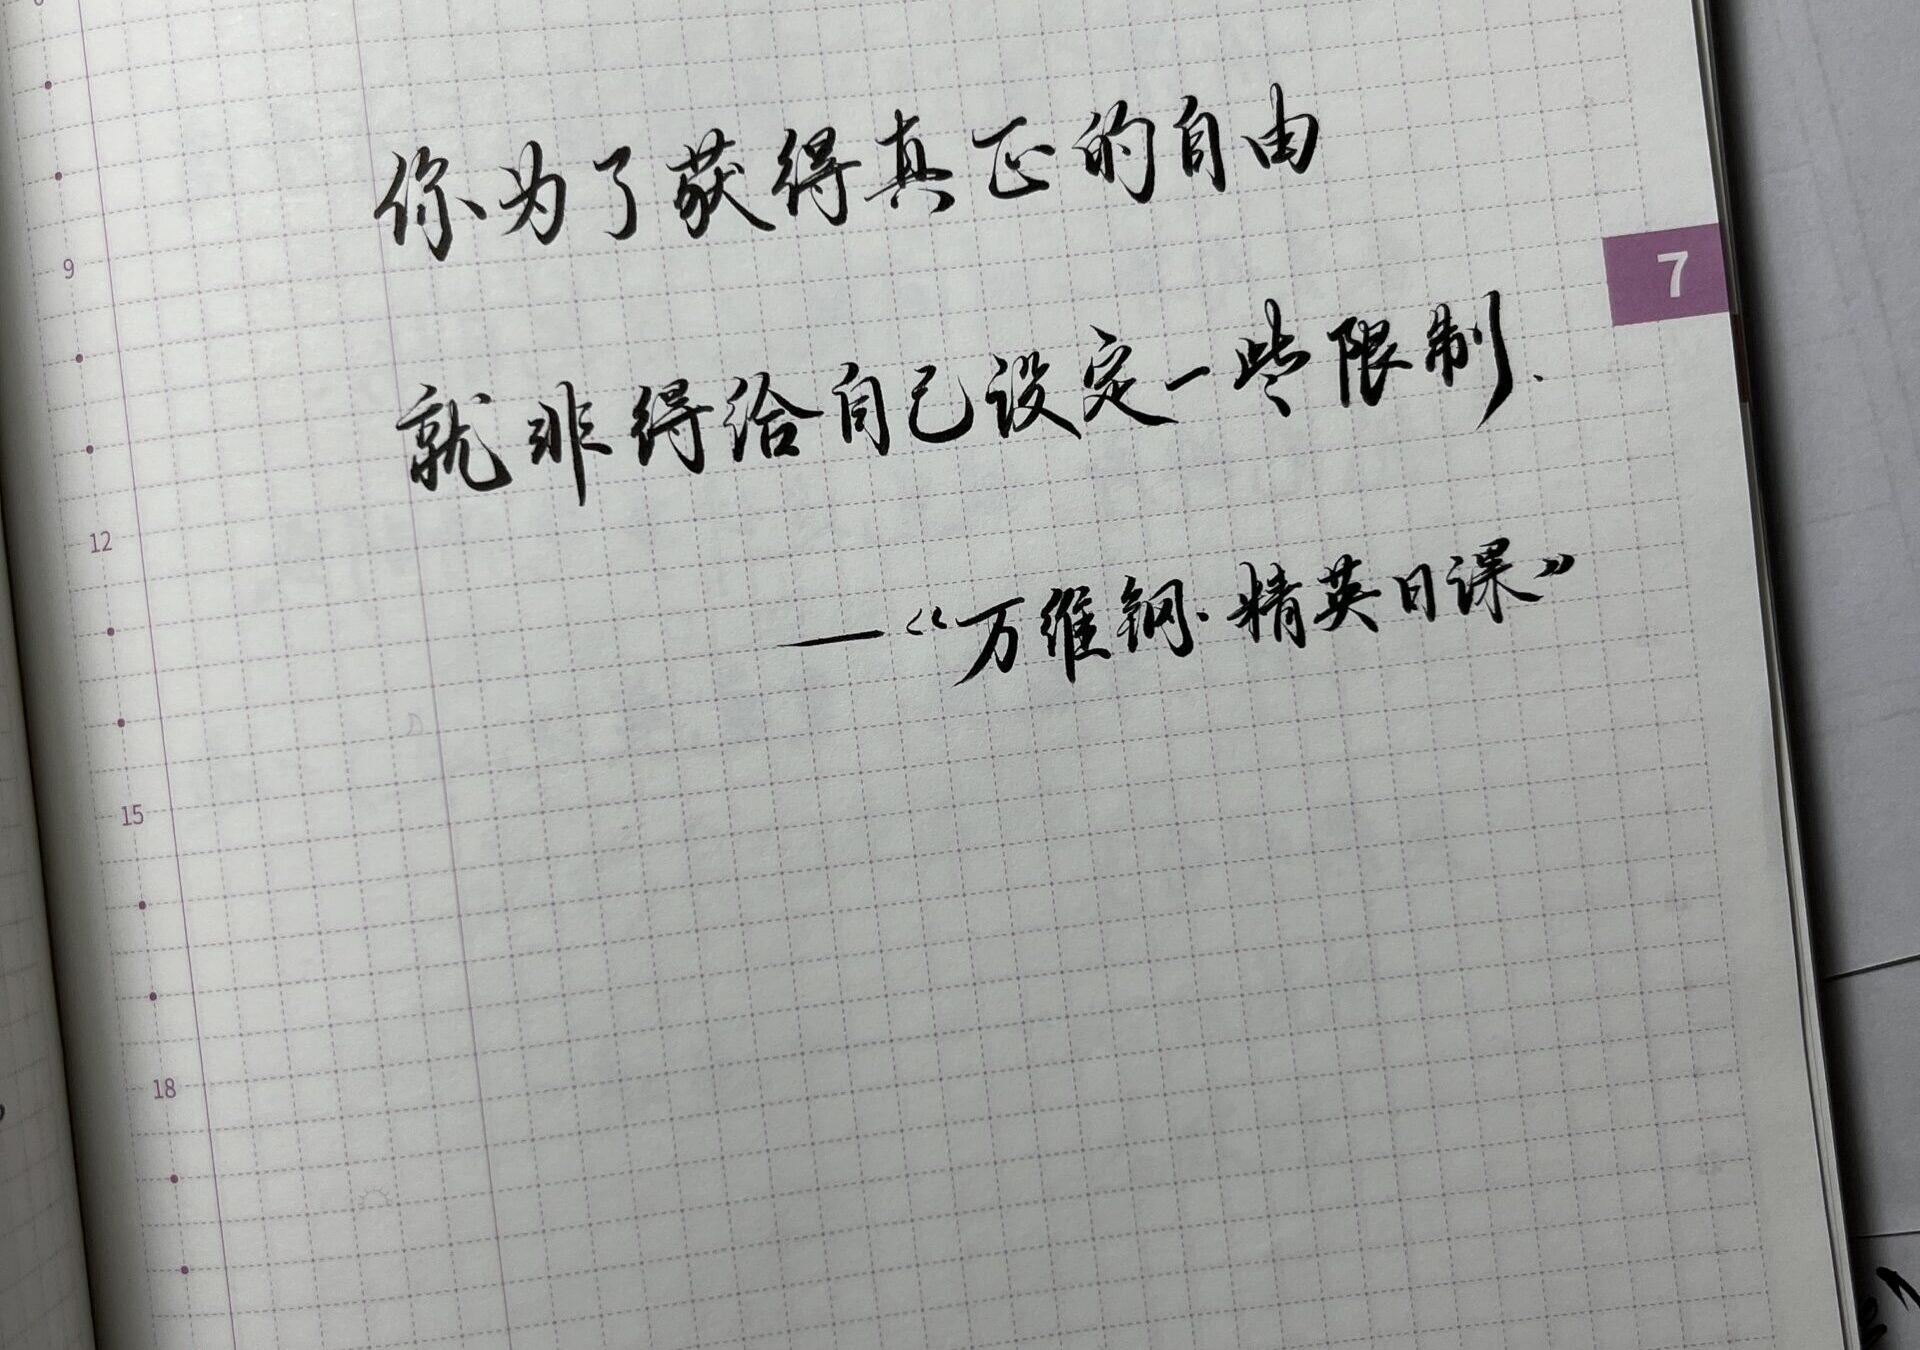 你为了获得真正的自由
7
9
就非得给自己设定一些限制.
12
—《万维钢·精英日课》
15
18